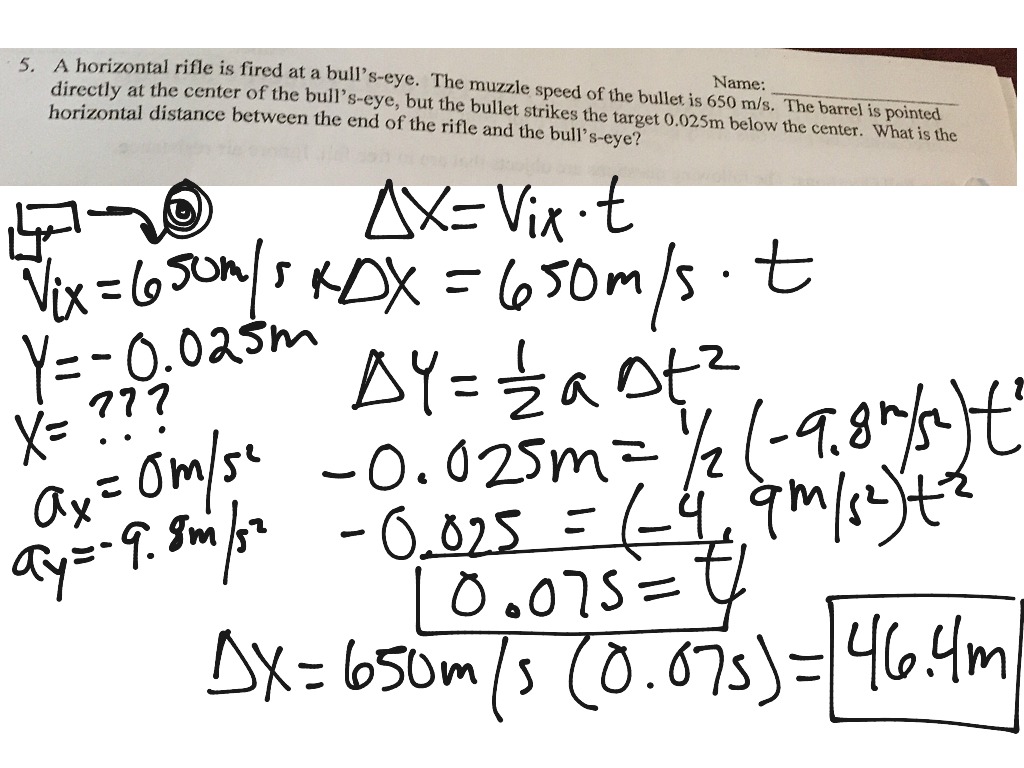 Name:
5. A horizontal rifle is fired at a bull's-eye. The muzzle speed of the bullet is 650 m/s. The barrel is pointed
directly at the center of the bull's-eye, but the bullet strikes the target 0.025m below the center. What is the
horizontal distance between the end of the rifle and the bull's-eye?
ΔX = Vix · t
Vix = 650m/s
*ΔX = 650m/s · t
Y = -0.025m
ΔY = 1/2 a Δt²
X = ???
-0.025m = 1/2 (-9.8m/s²)t²
ax = 0m/s²
-0.025 = (-4.9m/s²)t²
ay = -9.8m/s²
0.07s = t
ΔX = 650m/s (0.07s) = 46.4m